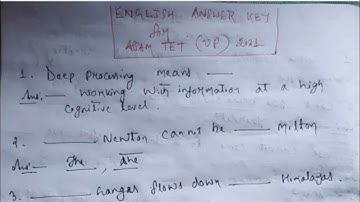 ENGLISH ANSWER KEY
for
ASSAM TET (UP) 2021
1. Deep processing means ___
Ans:- working with information at a high
cognitive level.
2. ___ Newton cannot be ___ Milton
Ans:- The, the
3. ___ Ganges flows down ___ Himalayas.